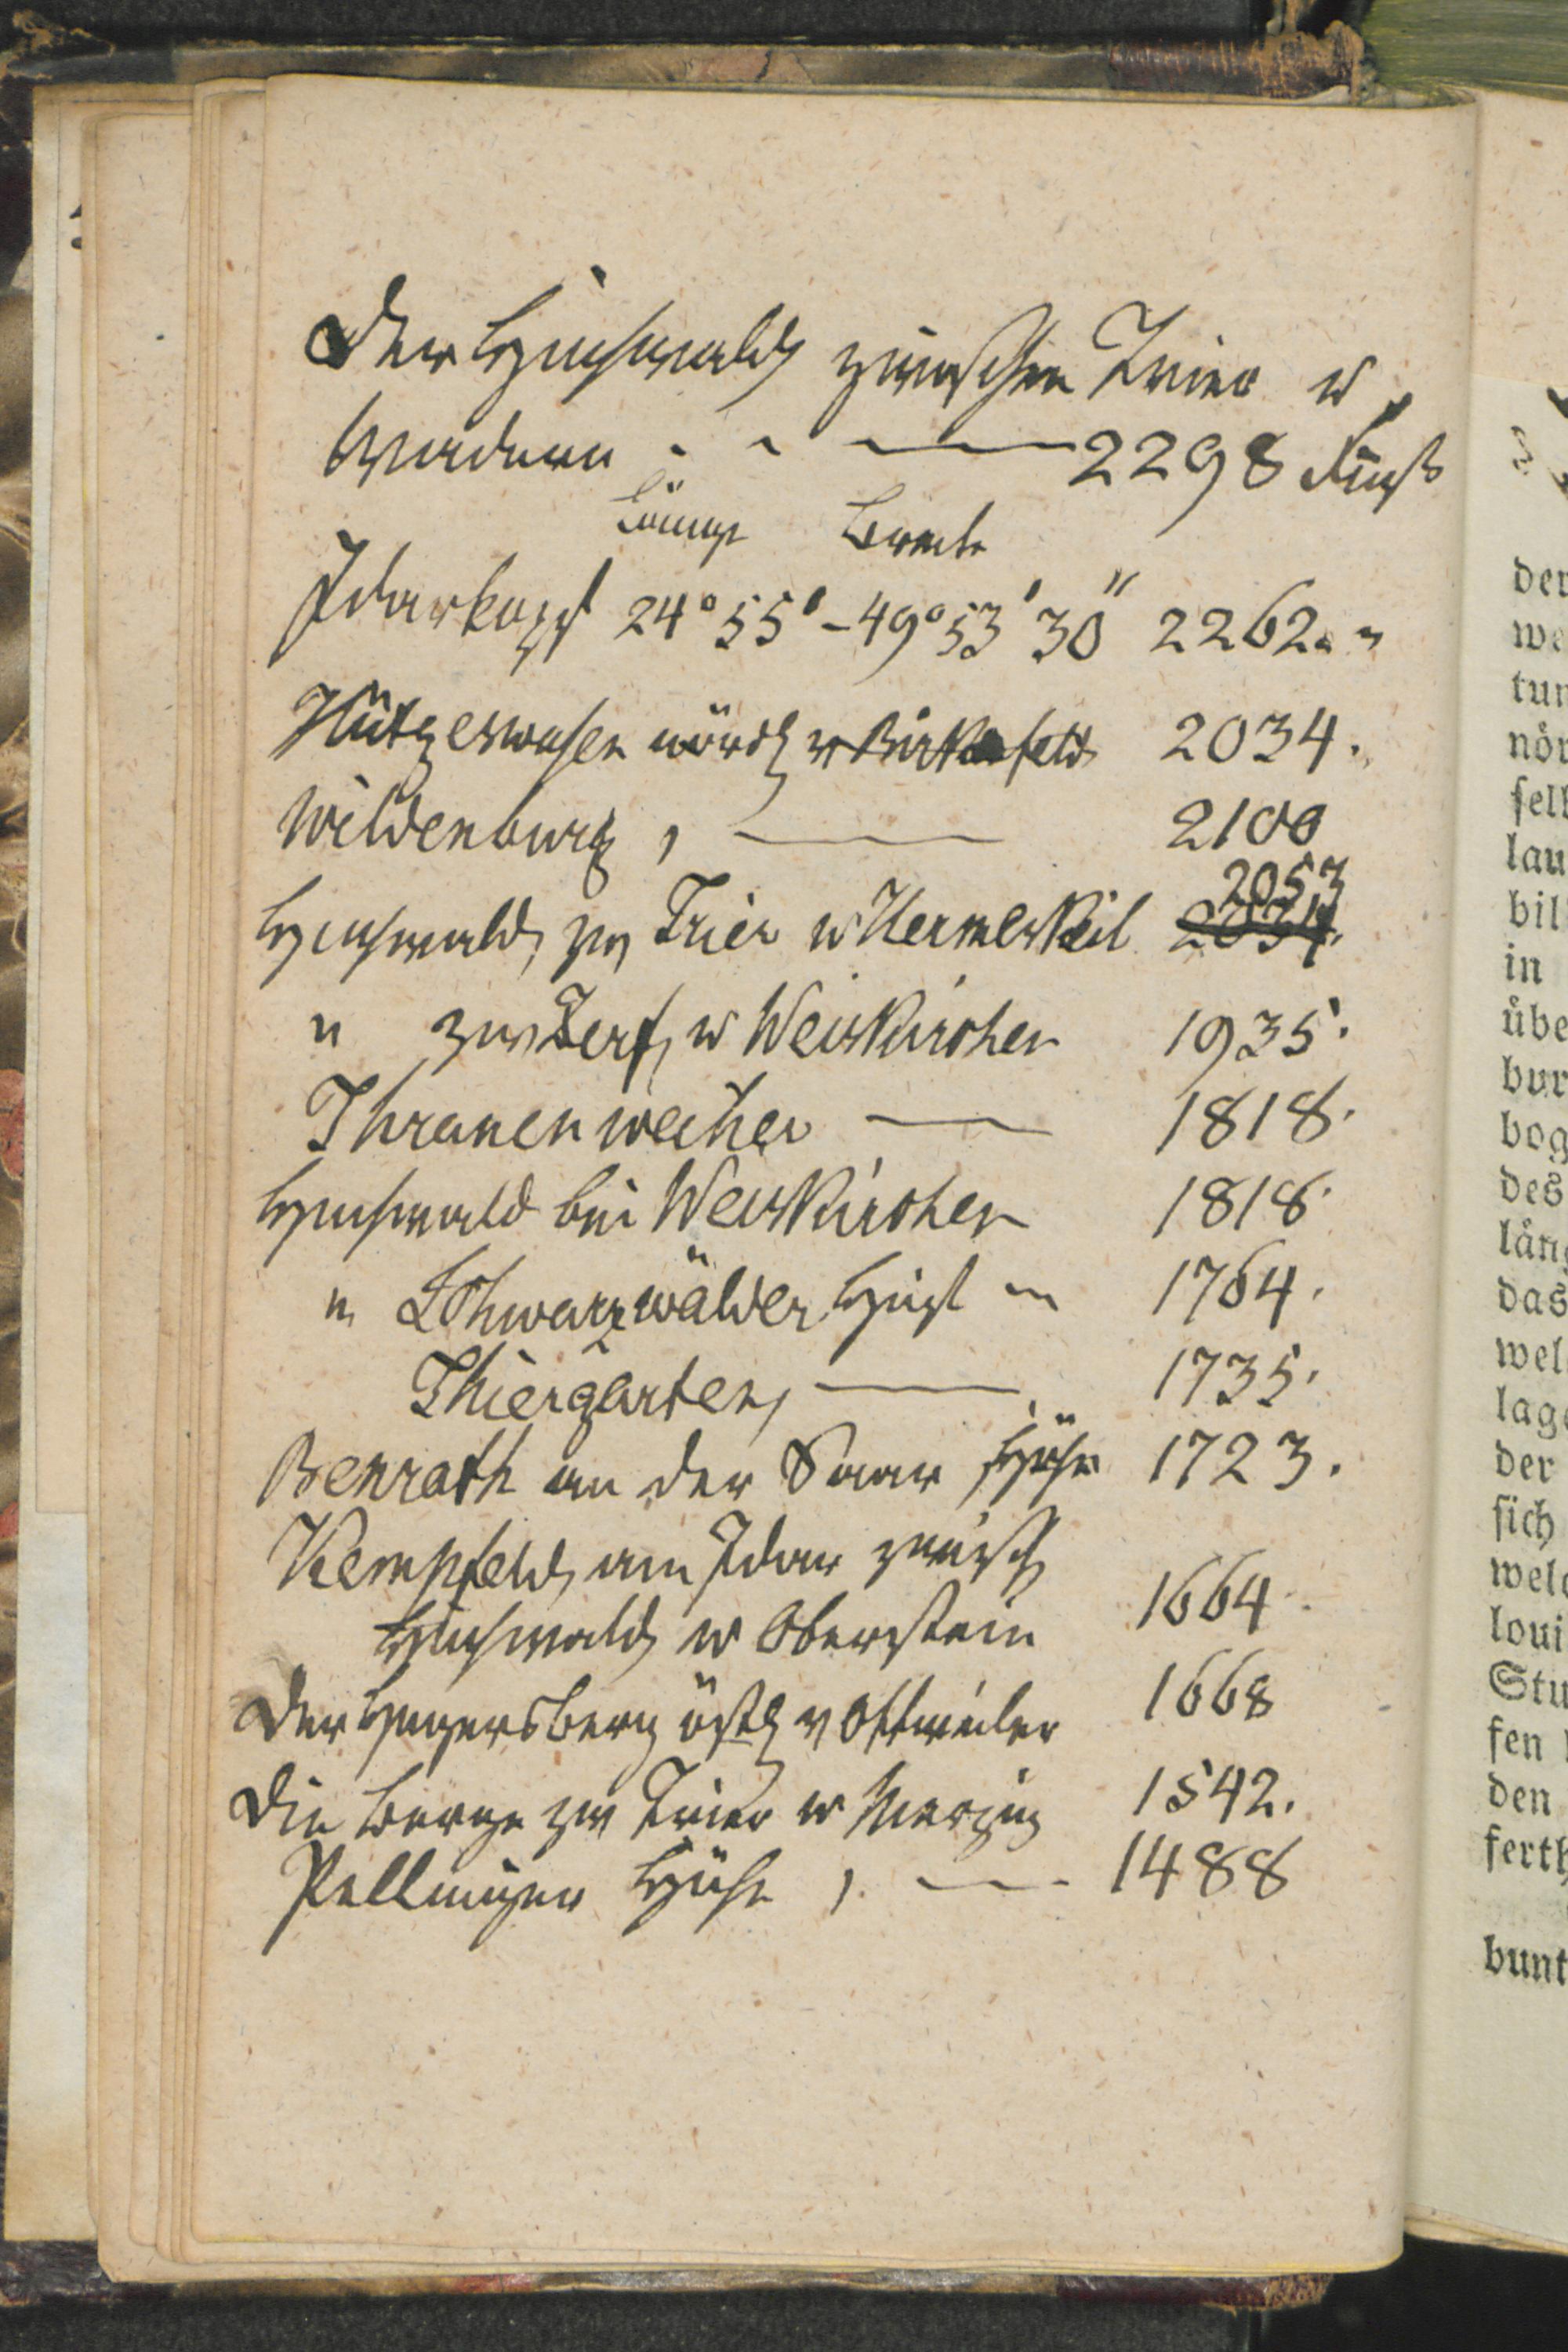 Der Hochwald zwischen Trier u
Wadern - - — 2298 Fuß
Länge Breite
Idarkopf 24° 55' – 49° 53' 30" 2262 "
Hützeswasen nördl v Birkenfeld 2034.
Wildenburg, — 2100
2053
Hochwald zw Trier u Hermeskeil 2034.
" zw Zerf u Weiskirchen 1935.
Thranenweiher — 1818.
Hochwald bei Weiskirchen 1818.
" Schwarzwälder Hochw 1764.
Thiergarten, — 1735.
Benrath an der Saar Höhe 1723.
Kempfeld am Idar zwisch
Hochwald u Oberstein 1664
Der östl v Ottweiler 1668
Die Berge zw Trier u Merzig 1542.
Pellinger Höhe, — 1488
der
we
tun
nör
sell
lau
bil
in
übe
bur
bog
des
läng
das
wel
lage
der
sich
welc
loui
Stu
fen
den
ferth
bunt